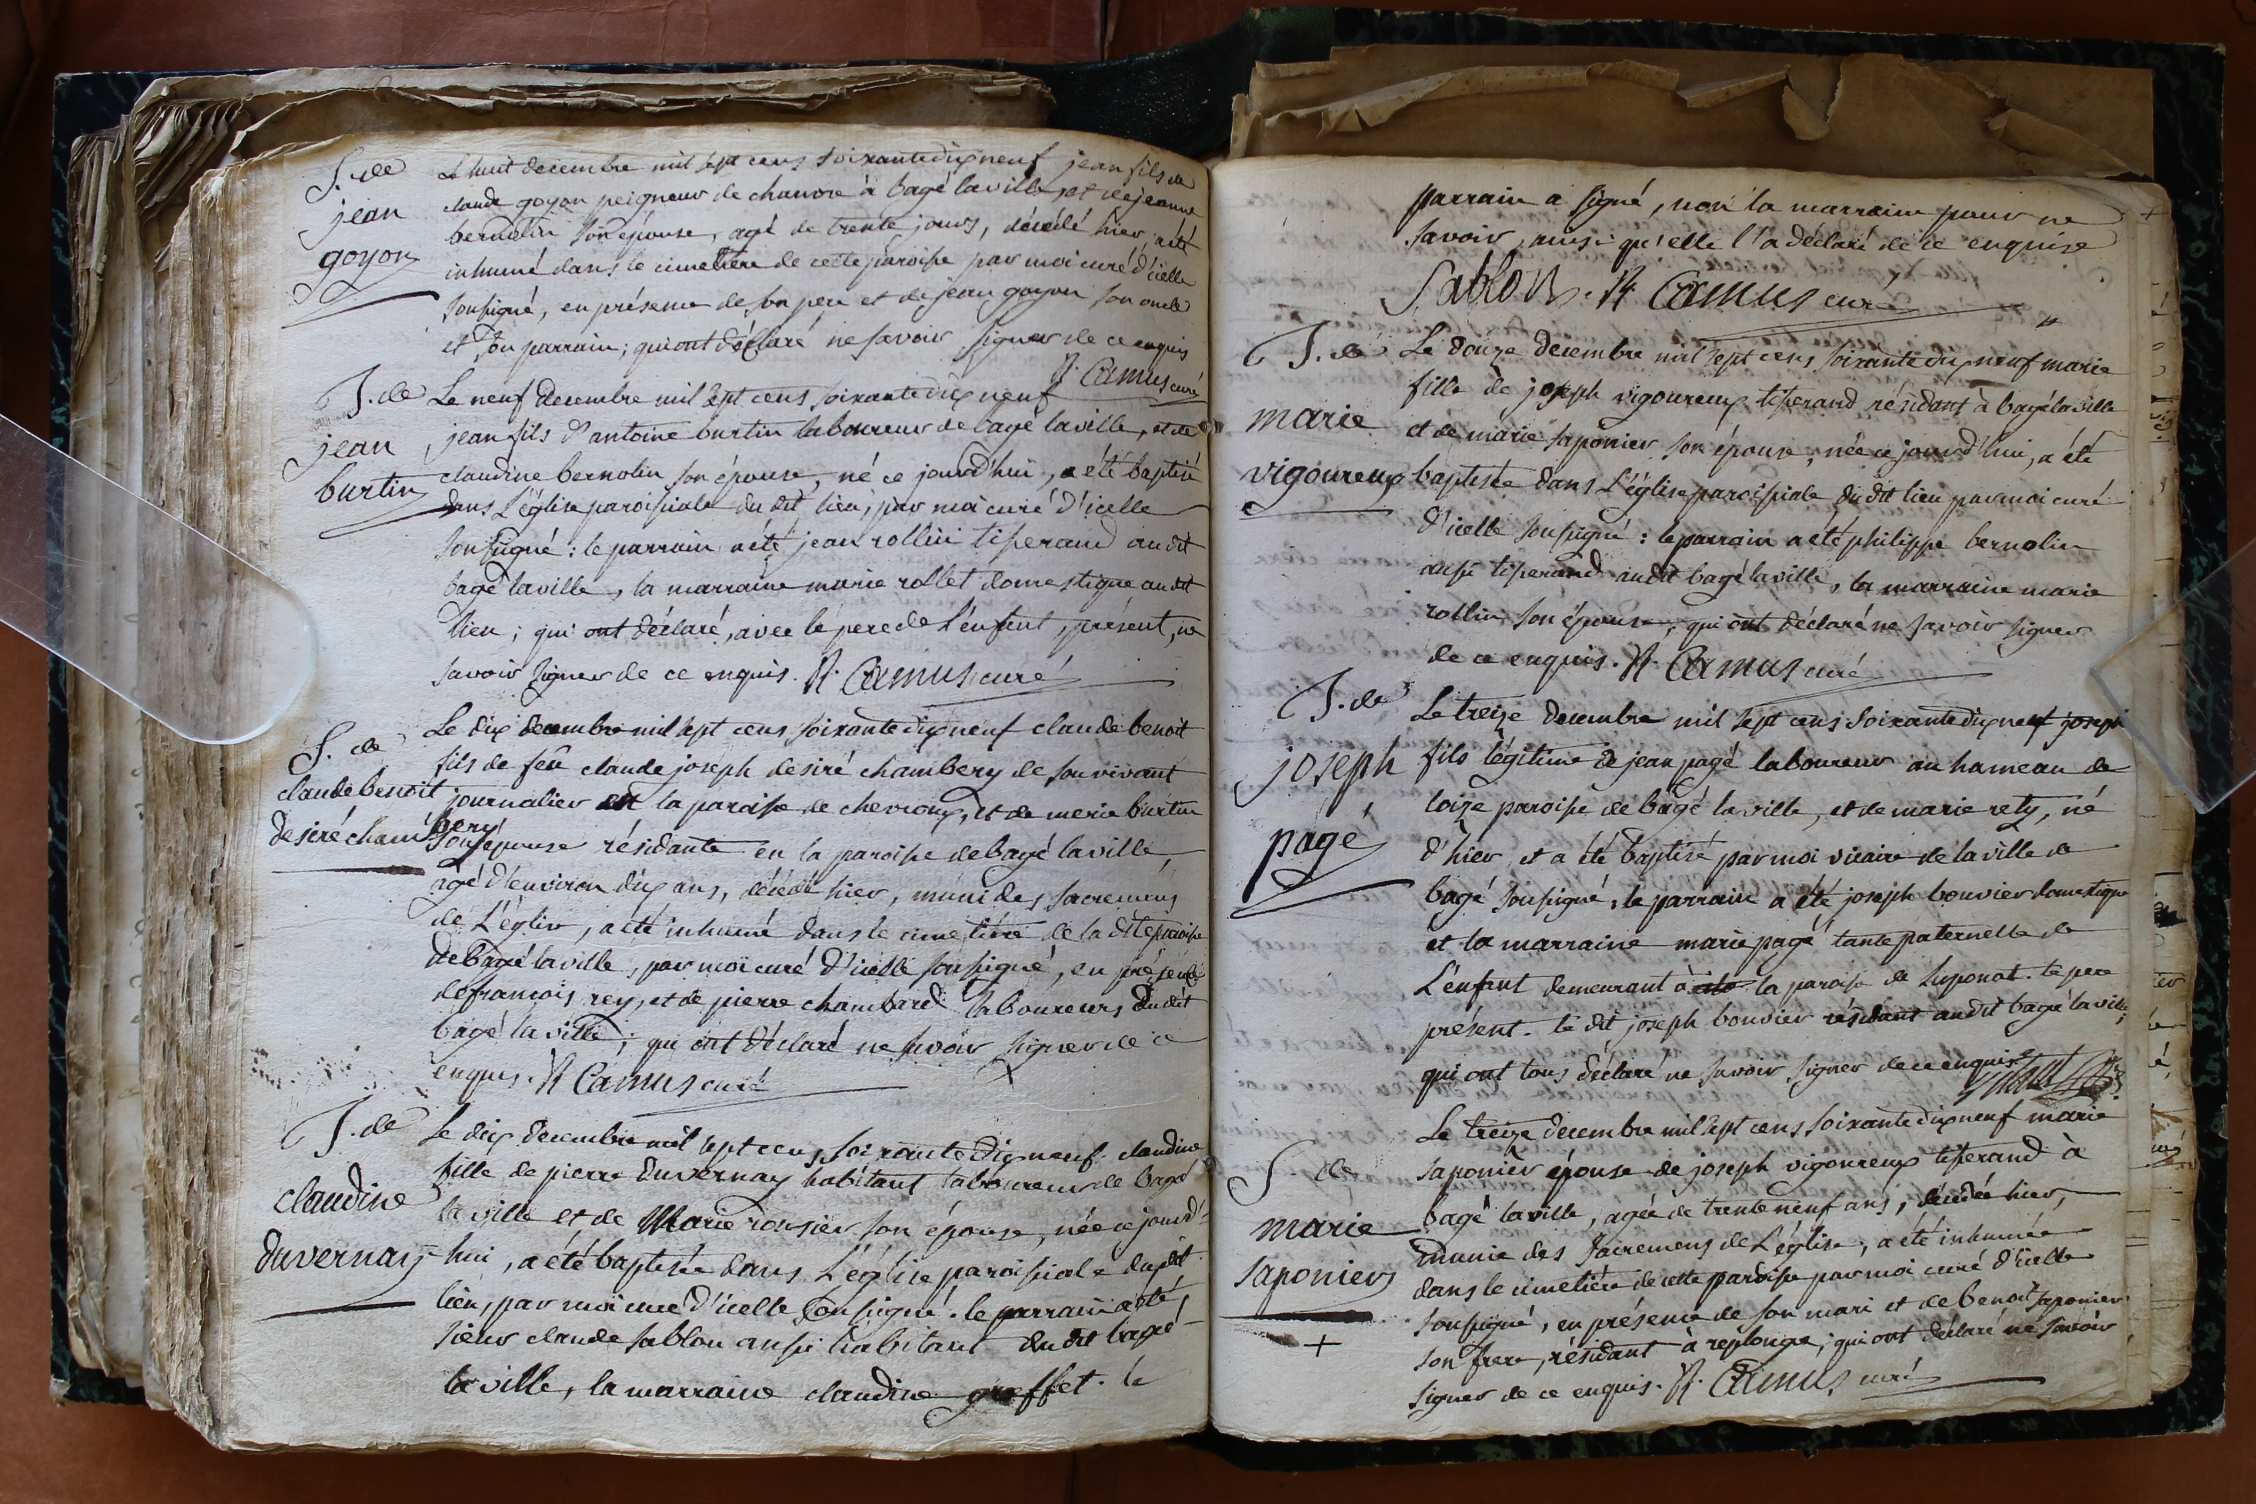 S. de
jean
goyon
Le huit decembre mil sept cens soixante dix neuf jean fils de
claude goyon peigneur de chanvre à bagé laville, et de jeanne
bernolin son épouse, agé de trente jours, décédé hier, a été
inhumé dans le cimetiere de cette paroisse par moi curé d'icelle
soussigné, en présence de son pere et de jean goyon son oncle
et son parrain; qui ont déclaré ne savoir signer de ce enquis
Camus curé
J. de
jean
burtin
Le neuf decembre mil sept cens soixante dix neuf
jean fils d'antoine burtin laboureur de bagé laville, et de
claudine bernolin son épouse, né ce jourd'hui, a été baptisé
dans L'église paroissiale du dit lieu, par moi curé d'icelle
soussigné: le parrain a été jean rollin tisserand audit
bagé laville, la marraine marie rollet domestique audit
lieu; qui ont déclaré, avec le pere de L'enfant, présent, ne
savoir signer de ce enquis. Camus curé
S. de
claude benoit
desiré chambery
Le dix decembre mil sept cens soixante dix neuf claude benoit
fils de feû claude joseph desiré chambery de son vivant
journalier en la paroisse de chevroux, et de marie burtin
son épouse résidante en la paroisse de bagé laville,
agé d'environ dix ans, décédé hier, muni des sacremens
de L'église, a été inhumé dans le cimetiere de la dite paroisse
de bagé laville, par moi curé d'icelle soussigné, en présence
de françois rey, et de pierre chambard laboureurs dudit
bagé la ville; qui ont déclaré ne savoir signer de ce
enquis. Camus curé
J. de
claudine
duvernay
Le dix decembre mil sept cens soixante dix neuf claudine
fille de pierre duvernay habitant laboureur de bagé
la ville et de Marie rousier son épouse, née ce jourd'
hui, a été baptisée dans L'église paroissiale dudit
lieu, par moi curé d'icelle soussigné. le parrain a été
sieur claude sablon aussi habitant dudit bagé
la ville, la marraine claudine greffet. le
parrain a signé, non la marraine pour ne
savoir, ainsi qu'elle l'a déclaré de ce enquise
Sablon. Camus curé
J. de
marie
vigoureux
Le douze decembre mil sept cens soixante dix neuf marie
fille de joseph vigoureux tisserand résidant à bagé laville
et de marie saponier son épouse, née ce jourd'hui, a été
baptisée dans L'église paroissiale du dit lieu par moi curé
d'icelle soussigné: le parrain a été philippe bernolin
aussi tisserand audit bagé laville, la marraine marie
rollin son épouse, qui ont déclaré ne savoir signer
de ce enquis. Camus curé
J. de
joseph
pagé
Le treize decembre mil sept cens soixante dix neuf joseph
fils légitime de jean pagé laboureur au hameau de
loize paroisse de bagé la ville, et de marie rety, né
d'hier et a été baptisé par moi vicaire de la ville de
bagé soussigné, le parrain a été joseph bouvier domestique
et la marraine marie pagé tante paternelle de
L'enfant demeurant à la paroise de huponat. le pere
présent. le dit joseph bouvier résidant audit bagé laville,
qui ont tous déclaré ne savoir signer de ce enquis
S. de
marie
saponier
+
Le treize decembre mil sept cens soixante dix neuf marie
saponier épouse de joseph vigoureux tisserand à
bagé laville, agée de trente neuf ans, décédée hier,
munie des sacremens de L'église, a été inhumée
dans le cimetiere de cette paroisse par moi curé d'icelle
soussigné, en présence de son mari et de benoit saponier
son frere, résidant à replonge; qui ont déclaré ne savoir
signer de ce enquis. Camus curé